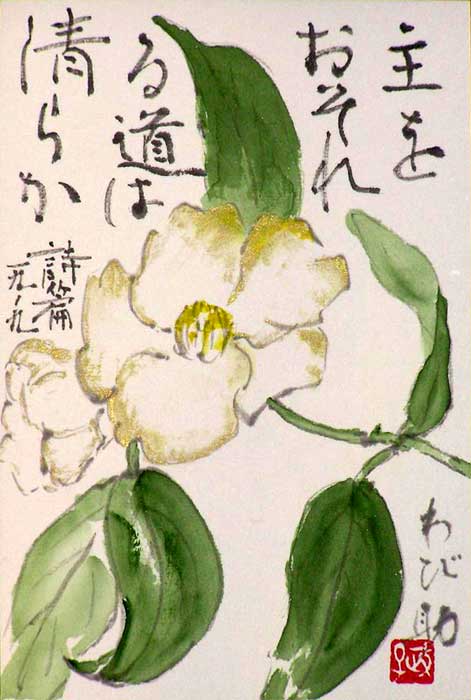 主を
おそれ
る道は
清らか
詩篇
一九・九
わび助